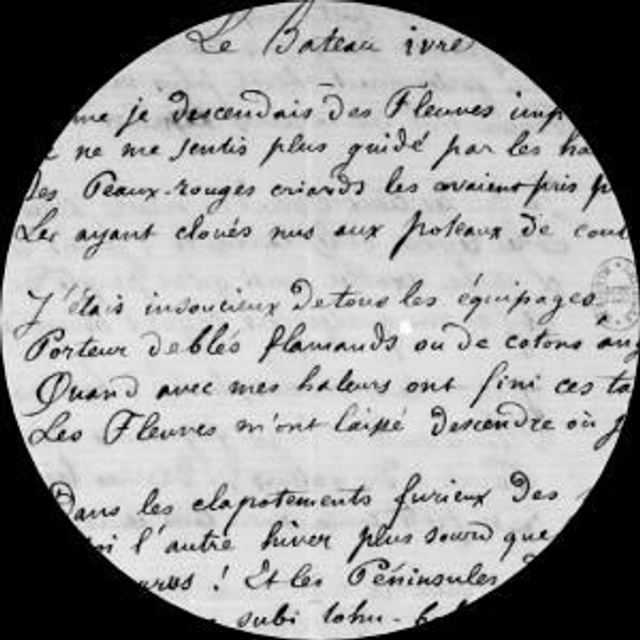 Le Bateau ivre
me je descendais des Fleuves imp
ne me sentis plus guidé par les ha
Des Peaux-rouges criards les avaient pris p
Les ayant cloués nus aux poteaux de cou
J'étais insoucieux de tous les équipages,
Porteur de blés flamands ou de cotons ang
Quand avec mes haleurs ont fini ces ta
Les Fleuves m'ont laissé descendre où j
Dans les clapotements furieux des
oi l'autre hiver plus sourd que
! Et les Péninsules
subi tohu-b